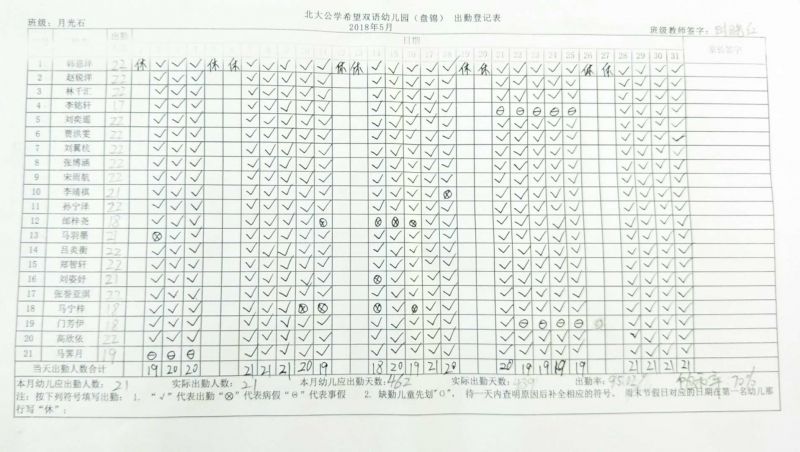 北大公学希望双语幼儿园（盘锦） 出勤登记表
2018年5月
班级：月光石
班级教师签字：
出勤 日期 家长签字
1 2 3 4 5 6 7 8 9 10 11 12 13 14 15 16 17 18 19 20 21 22 23 24 25 26 27 28 29 30 31
1 韩意洋 22 休 ✓ ✓ ✓ 休 休 ✓ ✓ ✓ ✓ ✓ 休 休 ✓ ✓ ✓ ✓ ✓ 休 休 ✓ ✓ ✓ ✓ ✓ 休 休 ✓ ✓ ✓ ✓
2 赵锐洋 22
3 林千汇 22
4 李铭轩 17 ⊖ ⊖ ⊖ ⊖ ⊖
5 刘奕遥 22
6 贾洪雯 22
7 刘翼杭 22
8 张博涵 22
9 宋雨航 22
10 李靖祺 21 ⊗
11 孙宁泽 22
12 邰梓尧 18 ⊗ ⊗ ⊗ ⊗
13 马羽墨 21 ⊗
14 吕奕衡 22
15 郑智轩 22
16 刘姿妤 21 ⊗
17 张誉亚淇 22
18 马宁梓 18 ⊗ ⊗ ⊗ ⊗
19 门芳伊 18 ⊖ ⊖ ⊖ ⊖
20 高欣依 22
21 马霁月 19 ⊖ ⊖ ⊖
当天出勤人数合计 19 20 20 21 21 21 20 19 18 20 19 21 20 20 19 19 19 19 21 21 21 21
本月幼儿应出勤人数：21 实际出勤人数：21 本月幼儿应出勤天数：462 实际出勤天数：439 出勤率：95.02% 70%
注：按下列符号填写出勤：1. “✓”代表出勤“⊗”代表病假“⊖”代表事假 2. 缺勤儿童先划"O"， 待一天内查明原因后补全相应的符号。 周末节假日对应的日期在第一名幼儿那
行写“休”；